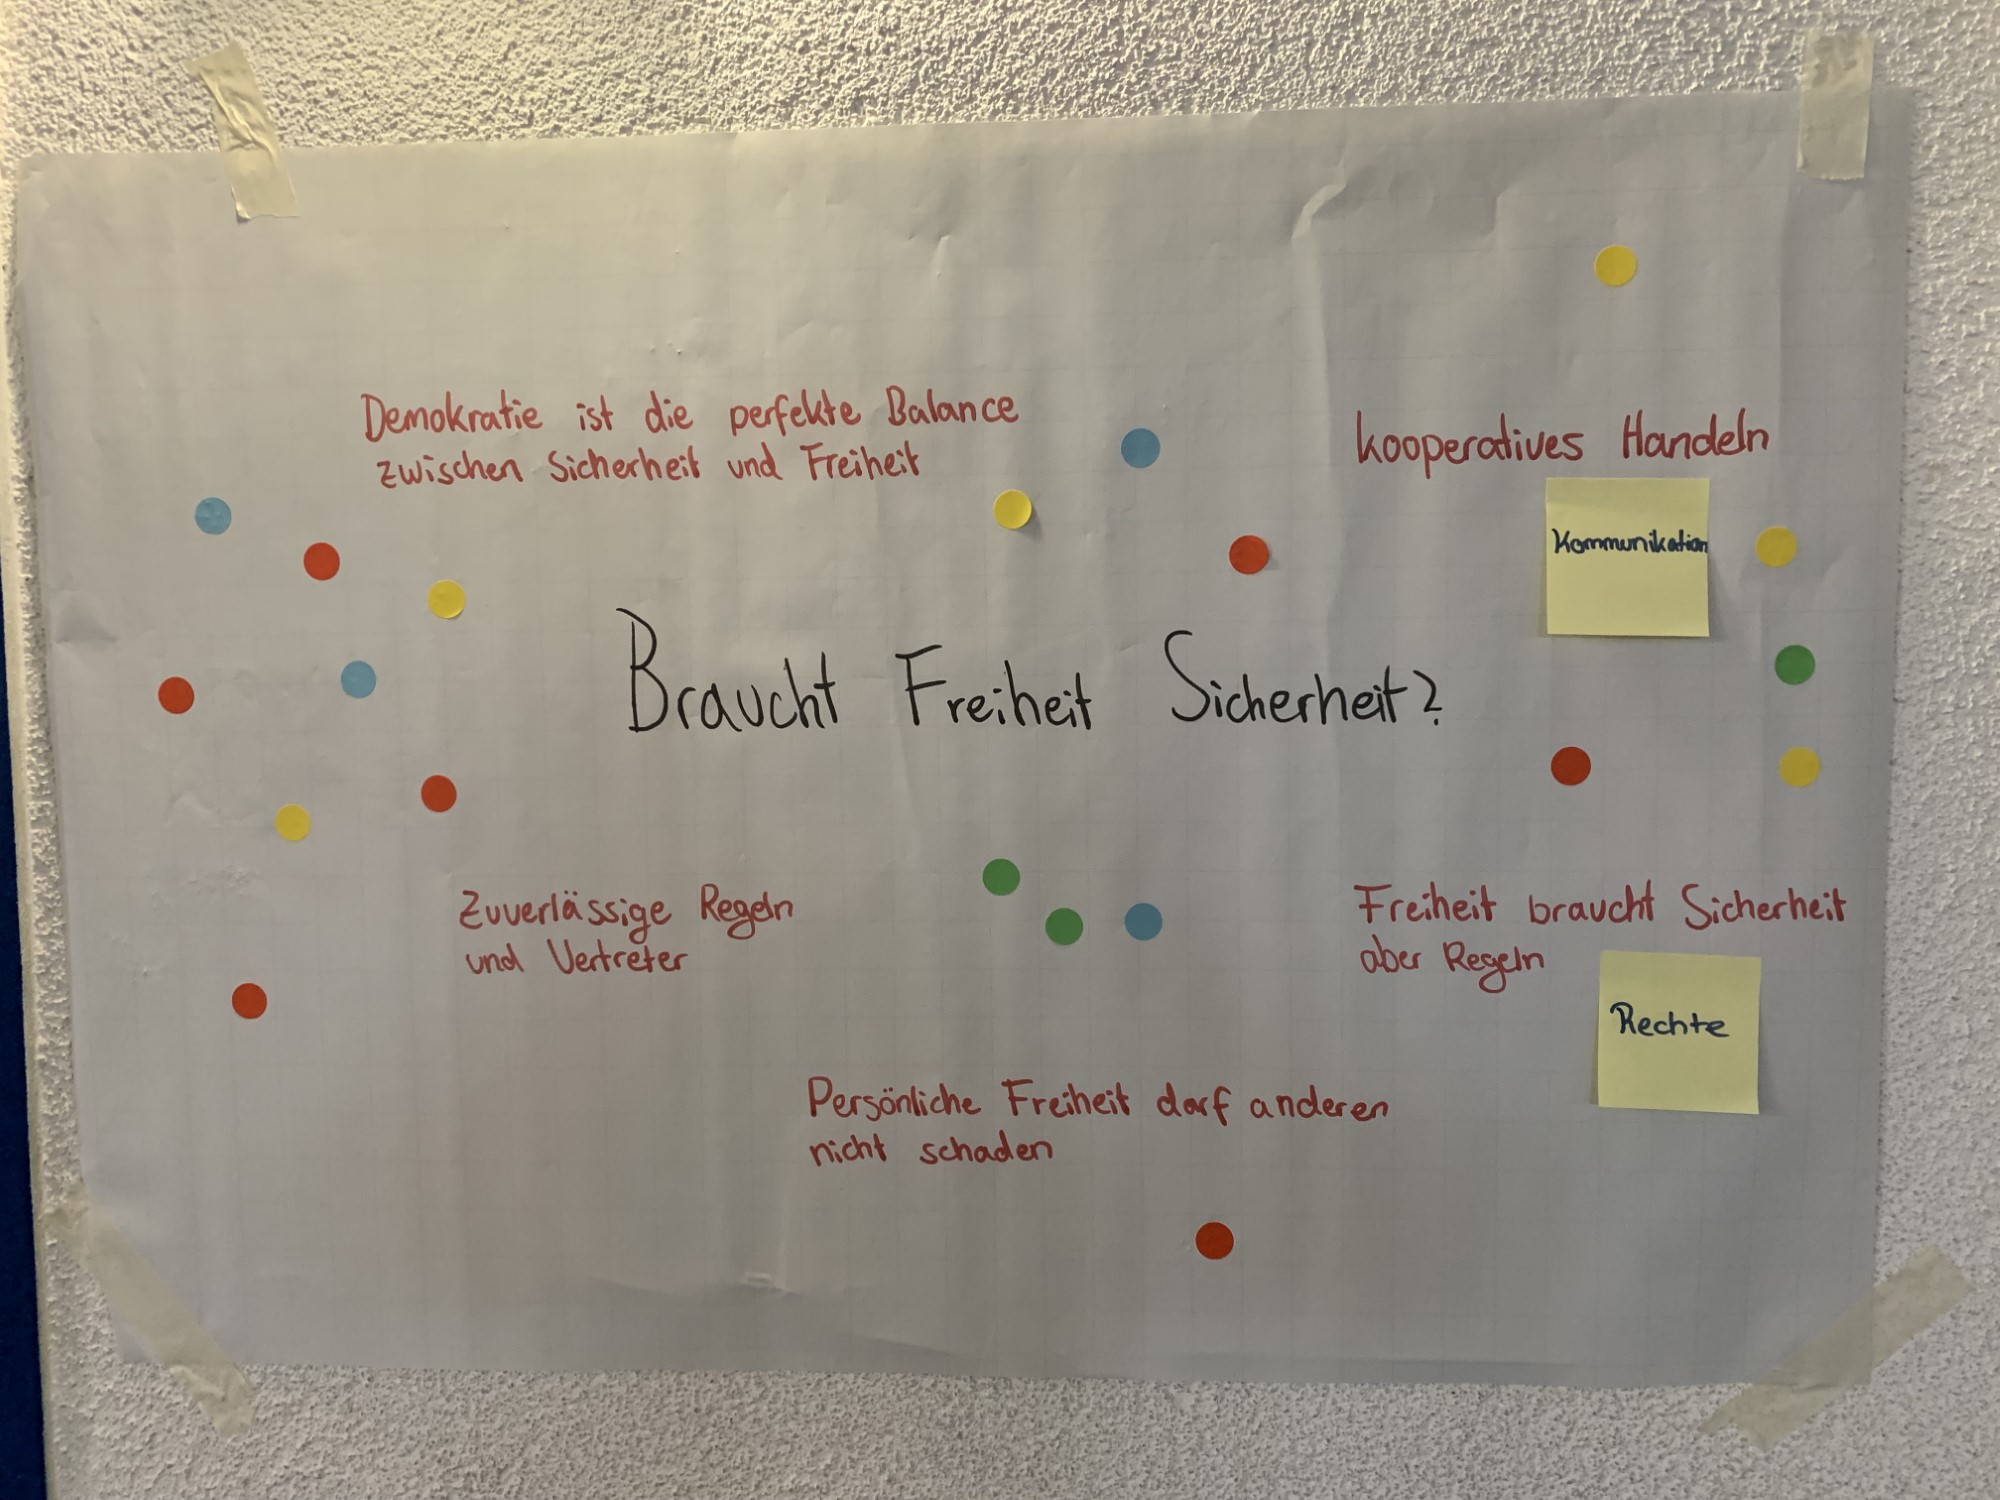 Demokratie ist die perfekte Balance
zwischen Sicherheit und Freiheit
kooperatives Handeln
Kommunikation
Braucht Freiheit Sicherheit?
Zuverlässige Regeln
und Vertreter
Freiheit braucht Sicherheit
aber Regeln
Rechte
Persönliche Freiheit darf anderen
nicht schaden